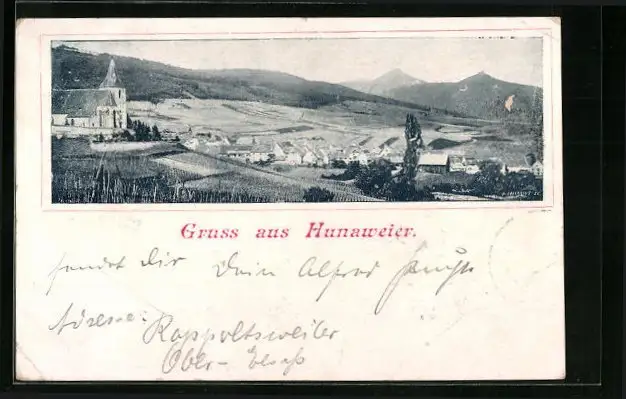 Gruss aus Hunaweier.
sendet Dir Dein Alfred
Adresse: Rappoltsweiler
Ober-Elsaß